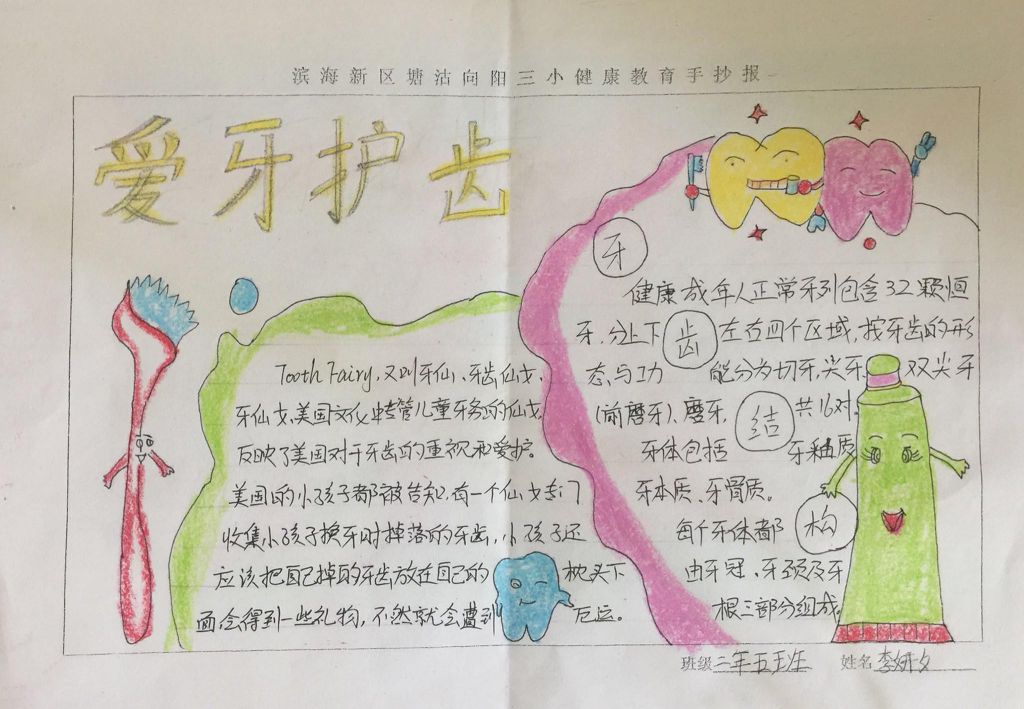 滨海新区塘沽向阳三小健康教育手抄报
爱牙护齿
Tooth Fairy,又叫牙仙、牙齿仙女、
牙仙女,美国文化中专管儿童牙务的仙女,
反映了美国对于牙齿的重视和爱护。
美国的小孩子都被告知,有一个仙女专门
收集小孩子换牙时掉落的牙齿,小孩子还
应该把自己掉的牙齿放在自己的枕头下
面会得到一些礼物,不然就会遭到厄运。
牙齿结构
健康成年人正常牙列包含32颗恒
牙,分上下左右四个区域,按牙齿的形
态与功能分为切牙,尖牙,双尖牙
(前磨牙)、磨牙,共16对。
牙体包括牙釉质
牙本质、牙骨质。
每个牙体都
由牙冠、牙颈及牙
根三部分组成。
班级 二年五班 姓名 李妍文